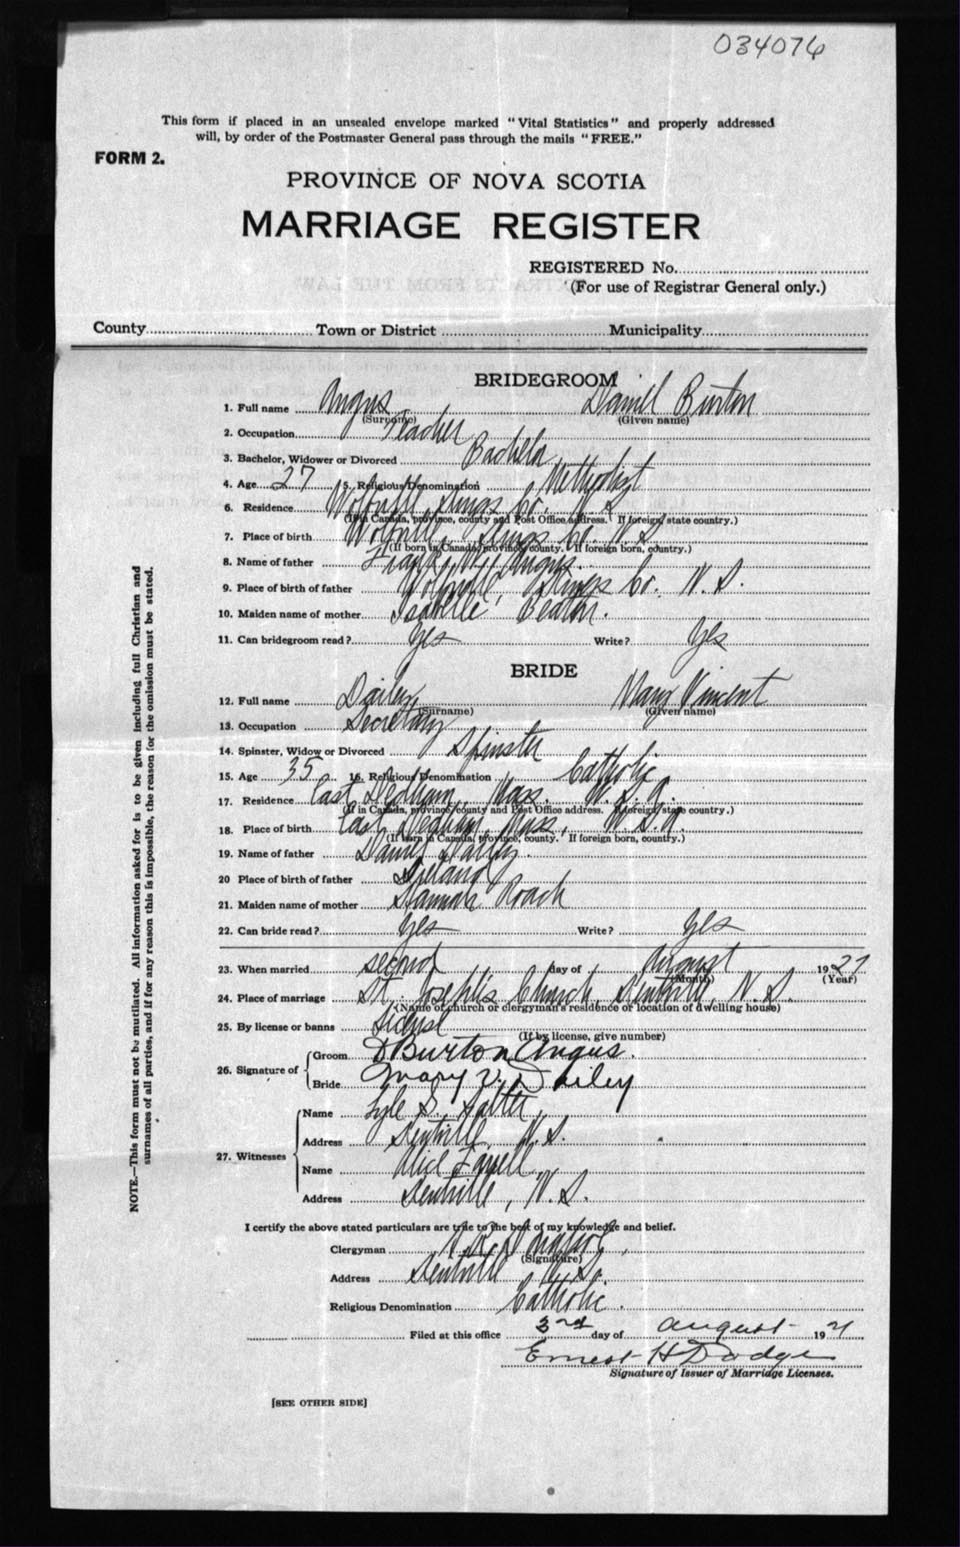 034076
This form if placed in an unsealed envelope marked "Vital Statistics" and properly addressed
will, by order of the Postmaster General pass through the mails "FREE."
FORM 2.
PROVINCE OF NOVA SCOTIA
MARRIAGE REGISTER
REGISTERED No.
(For use of Registrar General only.)
County Town or District Municipality
BRIDEGROOM
1. Full name Angus Daniel Burton
(Surname) (Given name)
2. Occupation Teacher
3. Bachelor, Widower or Divorced Bachelor
4. Age 27 5. Religious Denomination Methodist
6. Residence Wolfville Kings Co. N.S.
(If in Canada, province, county and Post Office address. If foreign, state country.)
7. Place of birth Wolfville, Kings Co. N.S.
(If born in Canada, province, county. If foreign born, country.)
8. Name of father Frank Angus.
9. Place of birth of father Wolfville, Kings Co. N.S.
10. Maiden name of mother Isabelle Beaton.
11. Can bridegroom read? Yes Write? Yes
BRIDE
12. Full name Dailey Mary Vincent
(Surname) (Given name)
13. Occupation Secretary
14. Spinster, Widow or Divorced Spinster
15. Age 35 16. Religious Denomination Catholic
17. Residence East Dedham, Mass. U.S.A.
(If in Canada, province, county and Post Office address. If foreign, state country.)
18. Place of birth East Dedham, Mass, U.S.A.
(If born in Canada, province, county. If foreign born, country.)
19. Name of father Dailey.
20 Place of birth of father Ireland
21. Maiden name of mother Hannah Roach
22. Can bride read? Yes Write? Yes
23. When married second day of August 1927
(Month) (Year)
24. Place of marriage St. Joseph's Church, Kentville, N.S.
(Name of church or clergyman's residence or location of dwelling house)
25. By license or banns
(If by license, give number)
26. Signature of
Groom D Burton Angus.
Bride Mary V. Dailey
27. Witnesses
Name Lyle S.
Address Kentville, N.S.
Name Alice Farrell
Address Kentville, N.S.
I certify the above stated particulars are true to the best of my knowledge and belief.
Clergyman
(Signature)
Address Kentville N.S.
Religious Denomination Catholic.
Filed at this office 3rd day of August 192
Ernest H Dodge
Signature of Issuer of Marriage Licenses.
[SEE OTHER SIDE]
NOTE.—This form must not be mutilated. All information asked for is to be given including full Christian and
surnames of all parties, and if for any reason this is impossible, the reason for the omission must be stated.